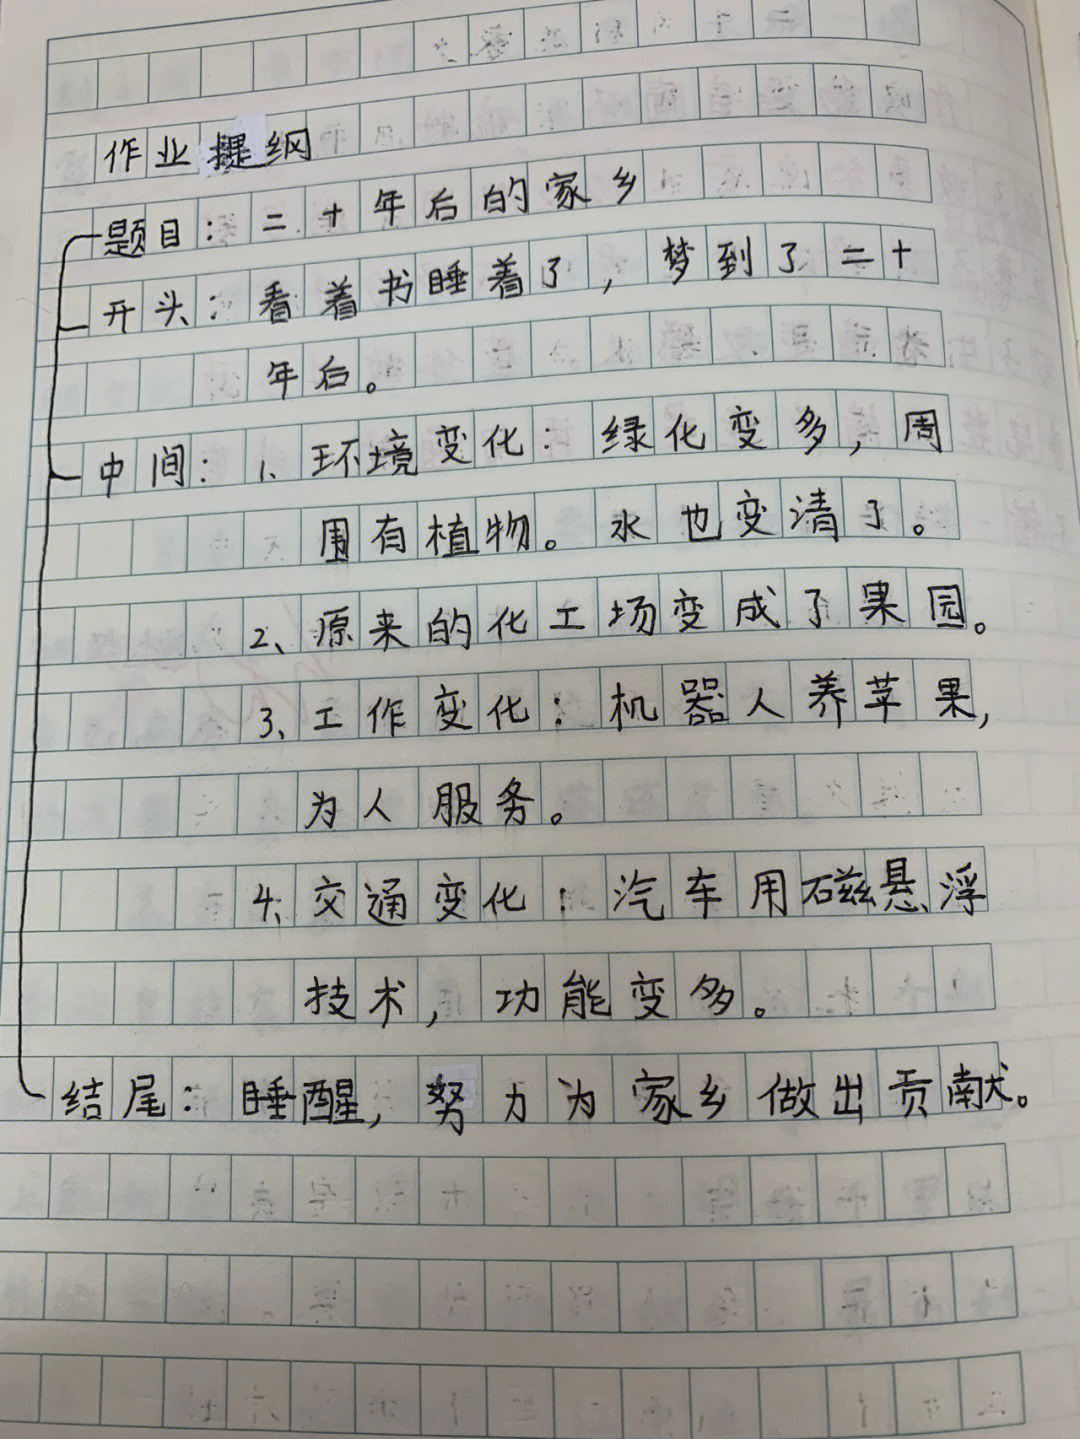 作业提纲
题目：二十年后的家乡
开头：看着书睡着了，梦到了二十
年后。
中间：1、环境变化：绿化变多，周
围有植物。水也变清了。
2、原来的化工场变成了果园。
3、工作变化：机器人养苹果，
为人服务。
4、交通变化：汽车用磁悬浮
技术，功能变多。
结尾：睡醒，努力为家乡做出贡献。